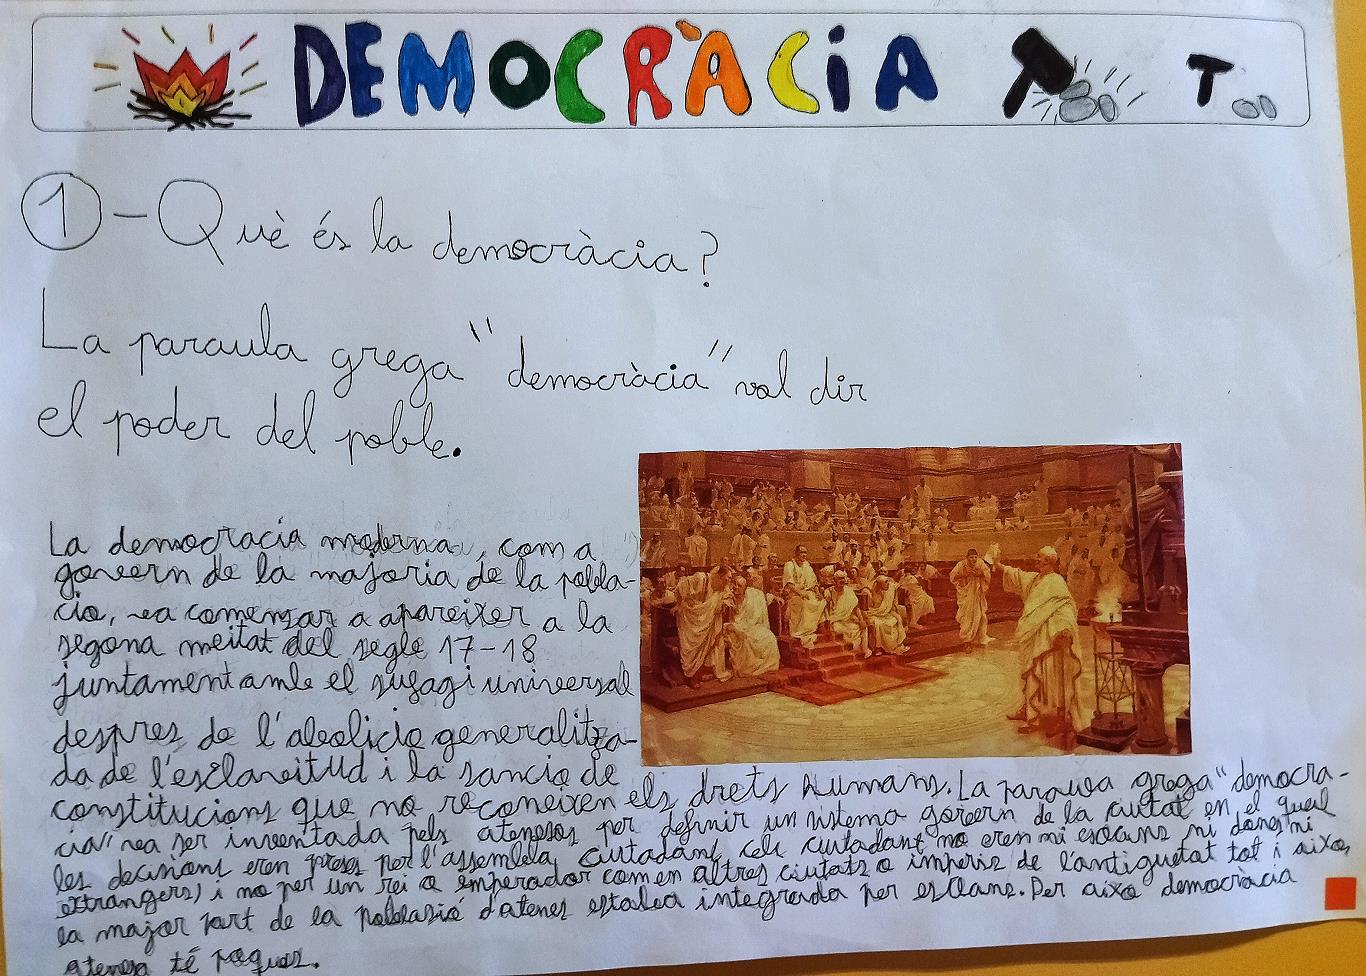 DEMOCRÀCiA
1 - Què és la democràcia?
La paraula grega "democràcia" vol dir
el poder del poble.
La democracia moderna, com a
govern de la majoria de la pobla-
cio, va comensar a apareixer a la
segona meitat del segle 17-18
juntament amb el sufagi universal
despres de l'abolicio generalitza-
da de l'esclavitud i la sancio de
constitucions que no reconeixen els drets humans. La paraula grega "democra-
cia" va ser inventada pels atenesos per definir un sistema govern de la ciutat en el qual
les decisions eren preses per l'assemblea ciutadans (els ciutadans no eren ni esclaus ni dones ni
extrangers) i no per un rei o emperador com en altres ciutats o imperis de l'antiguetat tot i aixo,
la major part de la poblasió d'atenes estaba integrada per esclaus. Per aixo democràcia
atenesa té